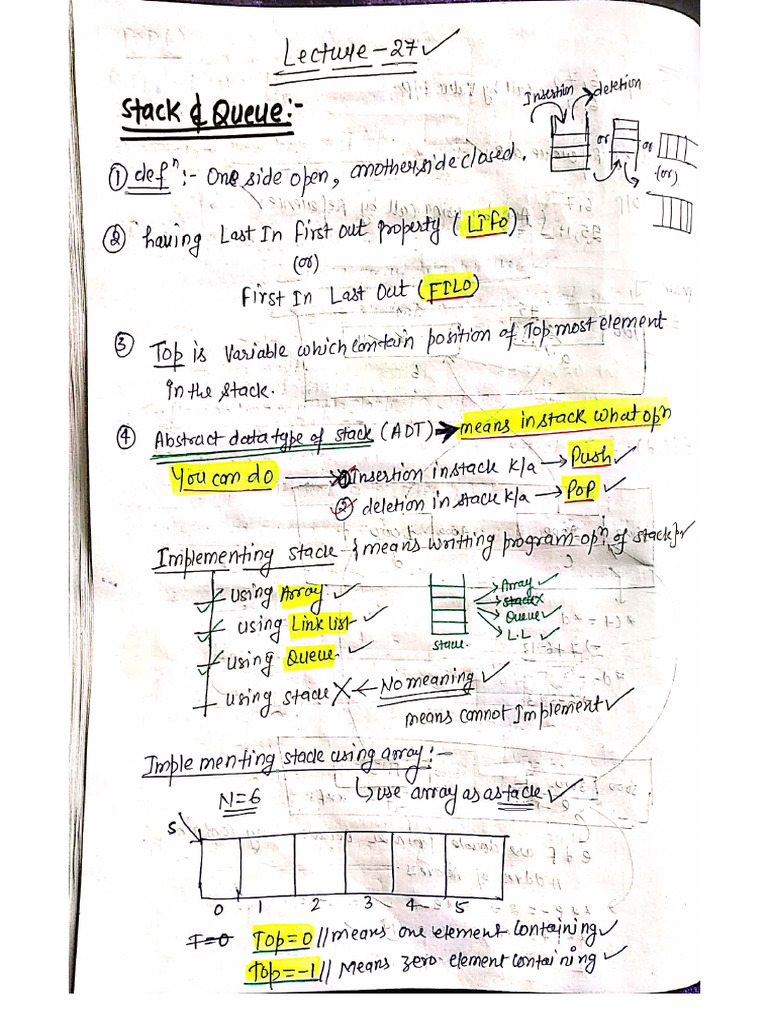 Lecture-27
Stack & Queue:-
Insertion deletion
or or (or)
① defⁿ:- One side open, another side closed.
② having Last In First Out property (LIFO)
(or)
First In Last Out (FILO)
③ Top is variable which contain position of Top most element
in the stack.
④ Abstract data type of stack (ADT) → means in stack what opⁿ
You can do → ① Insertion in stack k/a → Push
② deletion in stack k/a → POP
Implementing stack - {means writting program opⁿ of stack}
using Array
using Link list
using Queue
using stack X ← No meaning
means cannot Implement
Array
stack X
Queue
L.L
stack
Implementing stack using array:-
use array as a stack
N=6
S
0 1 2 3 4 5
T=0 Top=0 // means one element containing
Top=-1 // Means zero element containing